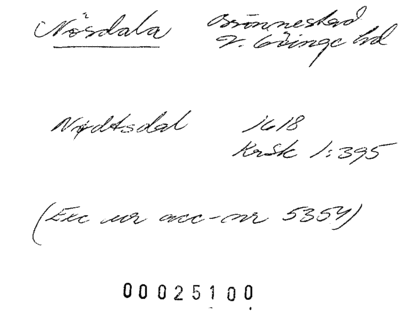 Nösdala Brönnestad
V. Göinge hd
Nødtsdal 1618
KrSk 1:395
(Exc ur acc-nr 5354)
00025100